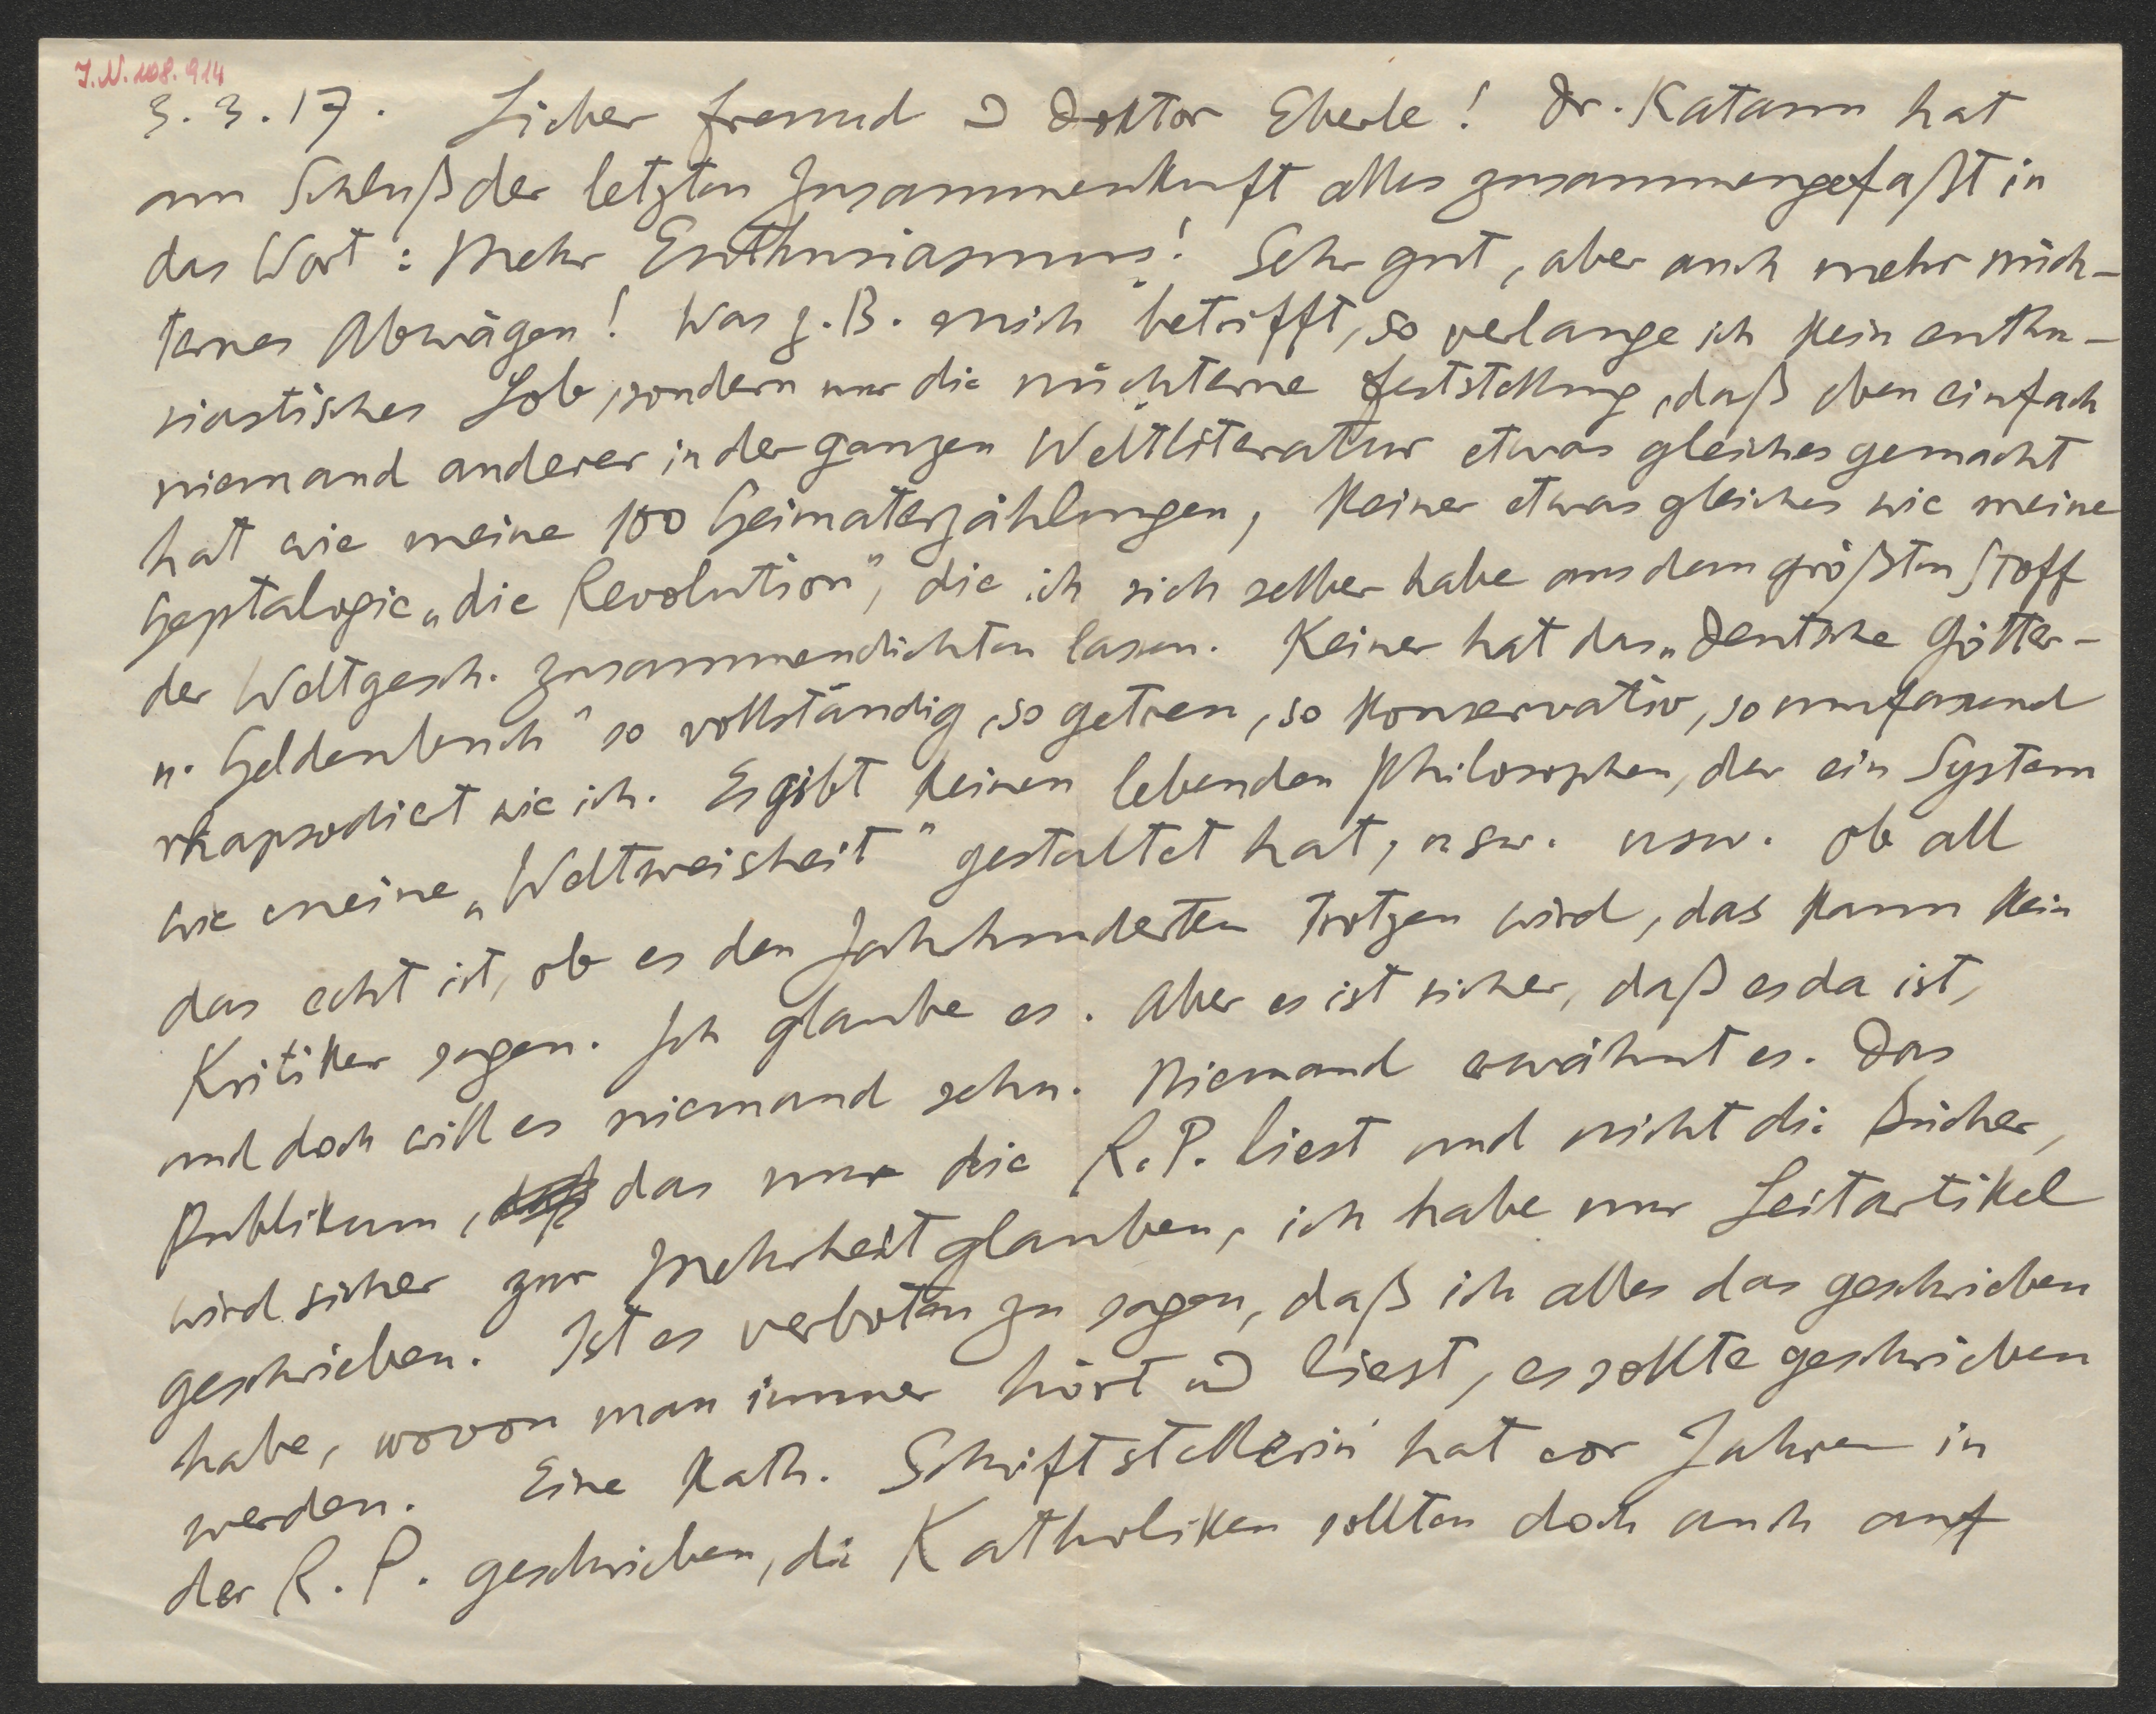 I.N. 108.914
3.3.17. Lieber Freund u Doktor Eberle! Dr. Katann hat
am Schluß der letzten Zusammenkunft alles zusammengefaßt in
das Wort: Mehr Enthusiasmus! Sehr gut, aber auch mehr nüch-
ternes Abwägen! Was z.B. mich betrifft, so verlange ich kein enthu-
siastisches Lob, sondern nur die nüchterne Feststellung, daß eben einfach
niemand anderer in der ganzen Weltliteratur etwas gleiches gemacht
hat wie meine 100 Heimaterzählungen, keiner etwas gleiches wie meine
Heptalogie „die Revolution", die ich sich selber habe aus dem größten Stoff
der Weltgesch. zusammendichten lassen. Keiner hat das „Deutsche Götter-
u. Heldenbuch" so vollständig, so getreu, so konservativ, so umfassend
rhapsodiert wie ich. Es gibt keinen lebenden Philosophen, der ein System
wie meine „Weltweisheit" gestaltet hat, usw. usw. Ob all
das echt ist, ob es den Jahrhunderten trotzen wird, das kann kein
Kritiker sagen. Ich glaube es. Aber es ist sicher, daß es da ist,
und doch will es niemand sehn. Niemand erwähnt es. Das
Publikum, das nur die R.P. liest und nicht die Bücher,
wird sicher zur Mehrheit glauben, ich habe nur Leitartikel
geschrieben. Ist es verboten zu sagen, daß ich alles das geschrieben
habe, wovon man immer hört u liest, es sollte geschrieben
werden. Eine kath. Schriftstellerin hat vor Jahren in
der R.P. geschrieben, die Katholiken sollten doch auch auf